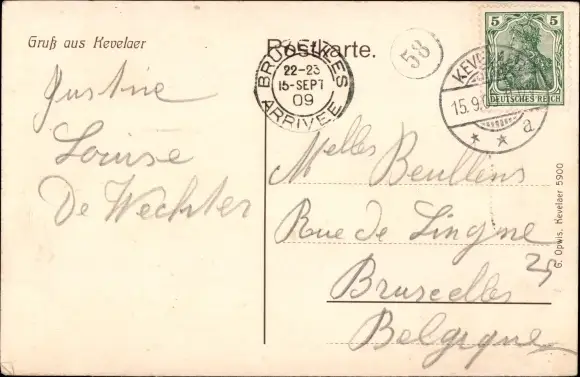 Gruß aus Kevelaer
Postkarte.
58
BRUXELLES
22-23
15-SEPT
09
ARRIVEE
5 5
DEUTSCHES REICH
KEVELAER
15.9.09
* * a
Justine
Louise
De Wechter
Melles Beullens
Rue de Lingne
25
Bruxelles
Belgique
G. Opwis, Kevelaer 5900